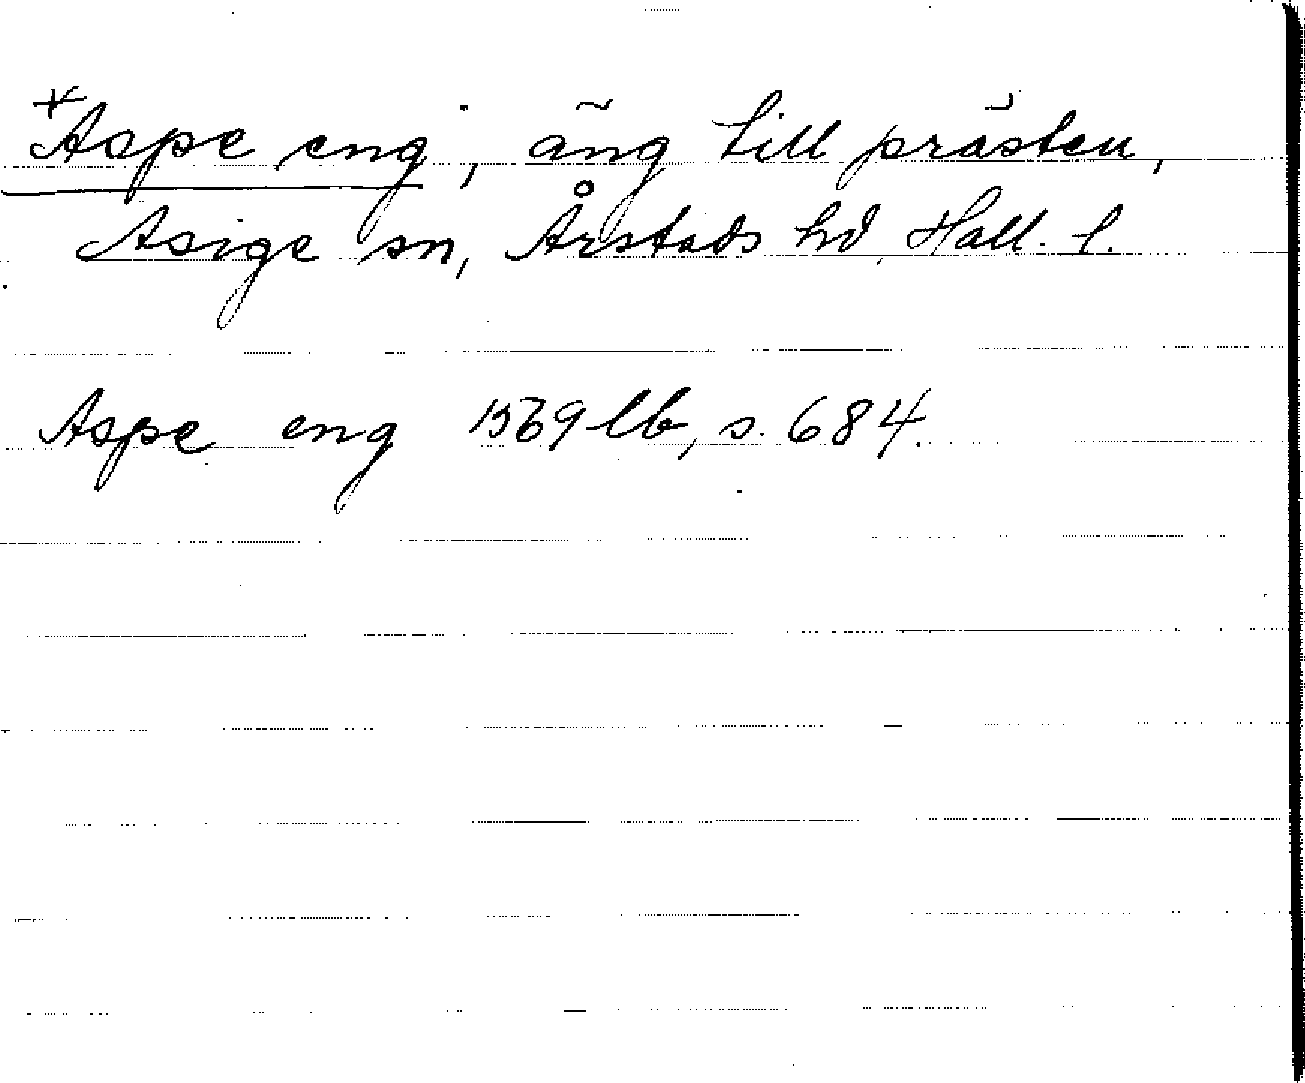 *Aspe eng, äng till prästen,
Asige sn, Årstads hd, Hall. l.
Aspe eng 1569 lb, s. 684.